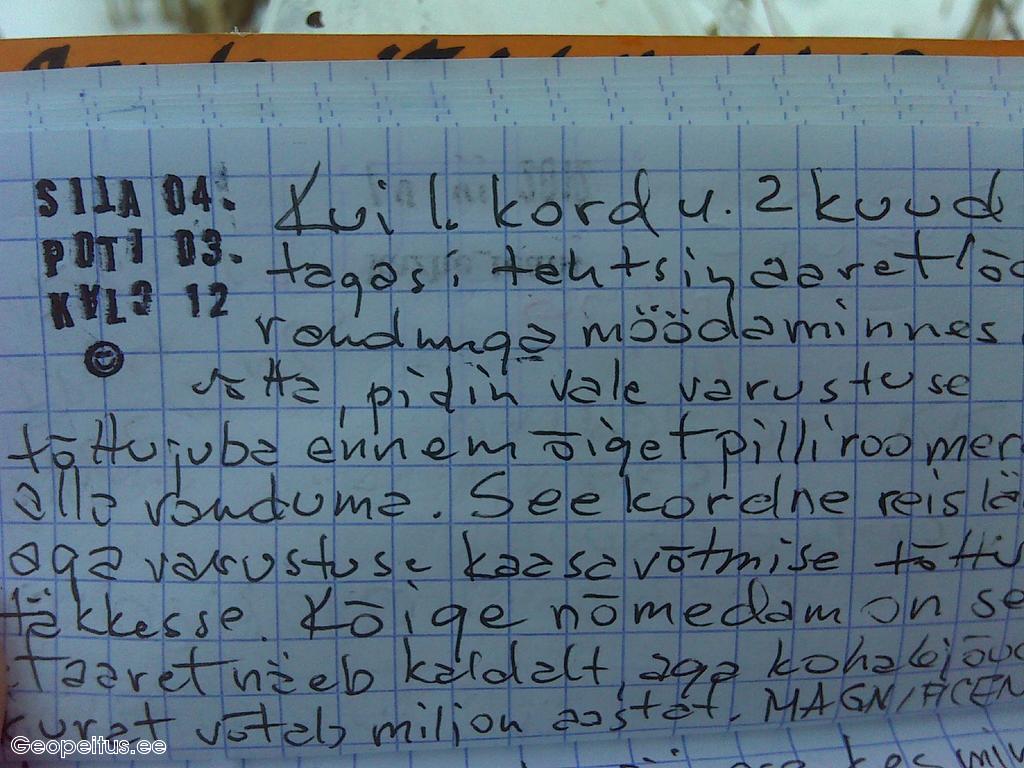 SIIA 04.
POTI 03.
KYLG 12
Kui 1. kord u. 2 kuud
tagasi tehtsin aaret
möödaminnes
võtta, pidin vale varustuse
tõttu juba ennem õiget pilliroomer
alla vanduma. Seekordne reis lä
aga varustuse kaasavõtmise tõttu
täkkesse. Kõige nõmedam on se
t aaret näeb kaldalt, aga kohalejõud
kurat võtab miljon aastat. MAGNIFICEN
Geopeitus.ee